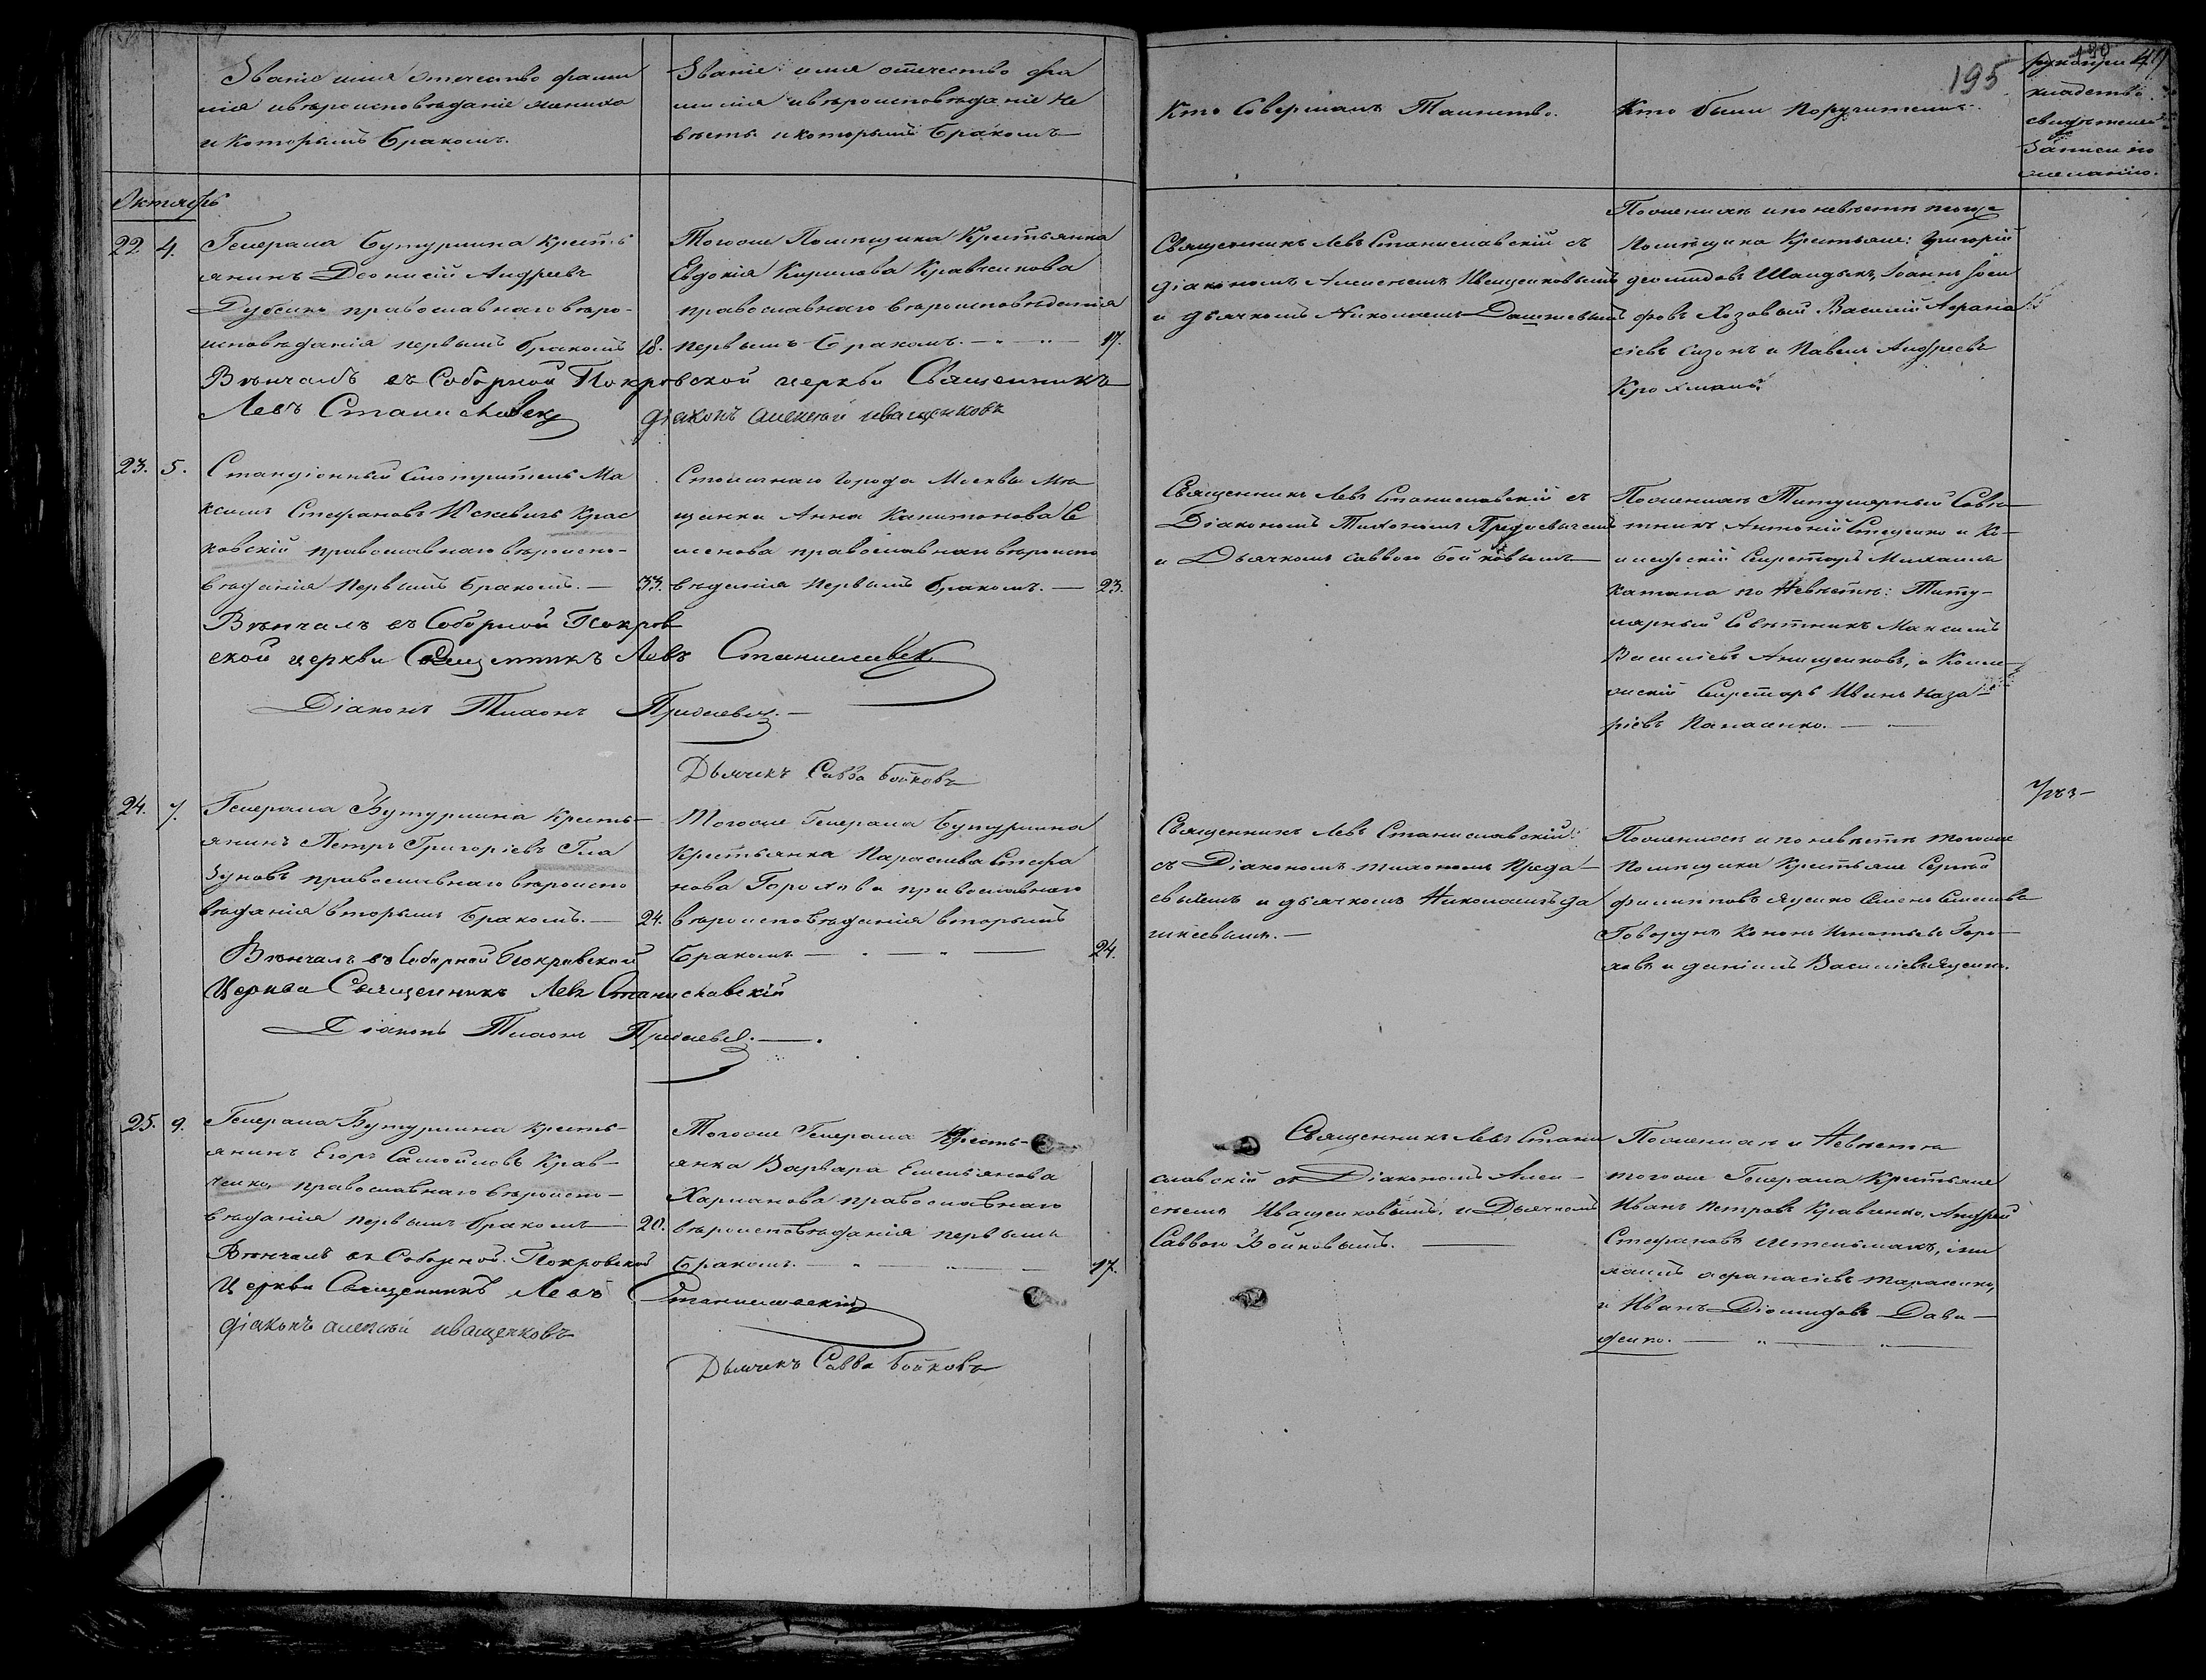 Званіе имя отечество фами
лія ивѣроисповѣданіе жениха
и которымъ бракомъ.
Званіе имя отечество фа
милія ивѣроисповѣданіе не
вѣсты икоторымъ бракомъ
Кто Совершалъ Таинство.
Кто были Поручители.
195
190
свидѣтелей
Записи по
желанію.
Октябрь
22 4.
Генерала Бутурлина Кресть
янинъ Діонисій Андреевъ
православнаго вѣро-
исповѣданія первымъ бракомъ 18.
Тогоже Помѣщика Крестьянка
Евдокія Кирилова Кравченкова
православнаго вѣроисповѣданія
первымъ бракомъ. 17.
Вѣнчалъ въ Соборной Покровской церкви Священникъ
Левъ Станиславск
діаконъ алексѣй иващенковъ
Священникъ Левъ Станиславскій съ
діакономъ Алексѣемъ Иващенковымъ
и дьячкомъ Николаемъ Дашкевымъ
Поженихѣ ипоневѣстѣ тогоже
Помѣщика Крестьяне: Григорій
Іоаннъ Іоси
фовъ Козовый Василій Афана
сіевъ Сизонъ и Павелъ Андреевъ
Крохмаль.
23. 5.
Станціонный Смотритель Ма
ксимъ Стефановъ
православнаго вѣроиспо-
вѣданія первымъ бракомъ. 33.
Столичнаго города Москвы Мѣ
щанка Анна Капитонова Се
менова православнаго вѣроиспо
вѣданія первымъ бракомъ. 23.
Вѣнчалъ въ Соборной Покров
ской церкви Священникъ Левъ Станиславск
Діаконъ Тихонъ
Дьячекъ Савва Бойковъ
Священникъ Левъ Станиславскій съ
Діакономъ Тихономъ
и Дьячкомъ Саввою Бойковымъ
Поженихѣ Титулярный Совѣ
тникъ Антоній Стеценко и Ко-
лежскій Секретарь Михаилъ
Катана по Невѣстѣ: Титу-
лярный Совѣтникъ Максимъ
Василіевъ Анищенковъ, и Колле-
жскій Секретарь Иванъ Наза-
ріевъ Панасенко.
24. 7.
Генерала Бутурлина Кресть-
янинъ Петръ Григоріевъ Гла
зуновъ православнаго вѣроиспо
вѣданія вторымъ бракомъ. 24.
Тогоже Генерала Бутурлина
Крестьянка Параскева Стефа
нова Горохова православнаго
вѣроисповѣданія вторымъ
бракомъ 24.
Вѣнчалъ въ Соборной Покровской
Церкви Священникъ Левъ Станиславскій
Діаконъ Тихонъ
Священникъ Левъ Станиславскій
съ Діакономъ Тихономъ
и дьячкомъ Николаемъ Да
шкевымъ.
Поженихѣ и по невѣстѣ тогоже
Помѣщика Крестьяне Сергѣй
Филиповъ Яценко Семенъ Семеновъ
Говорунъ Кононъ Игнатьевъ Горо-
ховъ и Даніилъ Василіевъ Яценко.
25. 9.
Генерала Бутурлина Кресть-
янинъ Егоръ Самойловъ Крав-
ченко, православнаго вѣроиспо-
вѣданія первымъ бракомъ 20.
Тогоже Генерала Кресть-
янка Варвара Емельянова
Харланова православнаго
вѣроисповѣданія первымъ
бракомъ. 17.
Вѣнчалъ въ Соборной Покровской
Церкви Священникъ Левъ Станиславскій
діаконъ алексѣй иващенковъ
Дьячекъ Савва Бойковъ
Священникъ Левъ Стани
славскій съ Діакономъ Алек-
сѣемъ Иващенковымъ, и Дьячкомъ
Саввою Бойковымъ.
Поженихѣ и Невѣстѣ
тогоже Генерала Крестьяне
Иванъ Петровъ Кравченко, Андрей
Стефановъ Метельманъ, Ми
хаилъ Афанасіевъ Тарасенко,
и Иванъ Діомидовъ Дави-
денко.